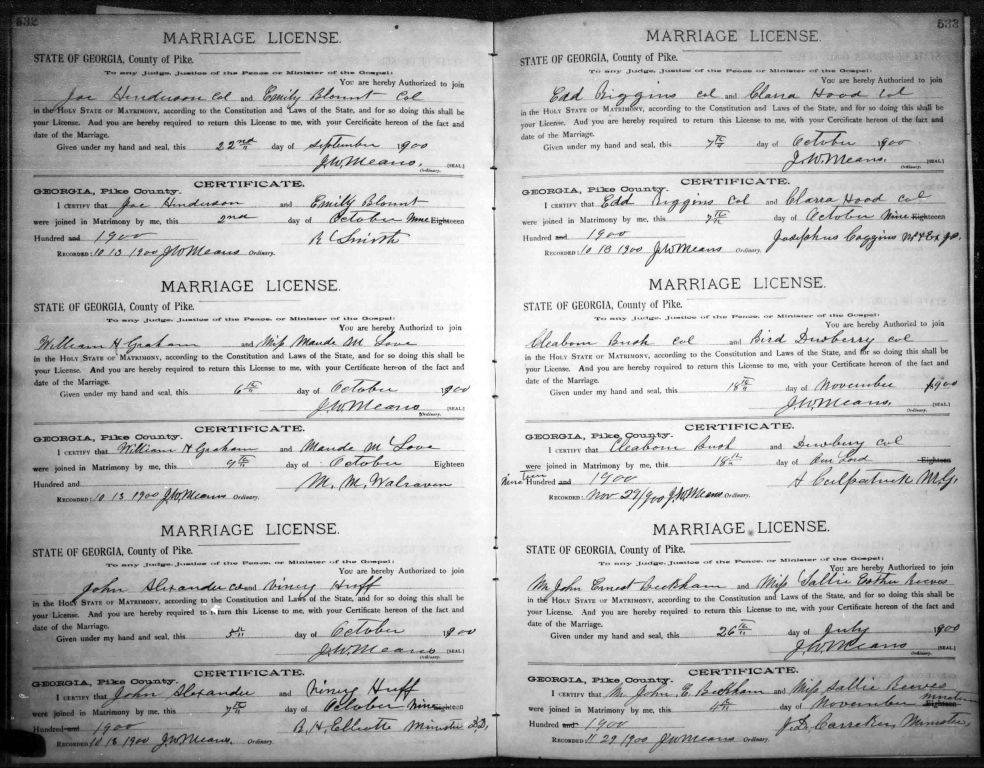 532
MARRIAGE LICENSE.
STATE OF GEORGIA, County of Pike.
To any Judge, Justice of the Peace, or Minister of the Gospel:
You are hereby Authorized to join
Joe Hinderson Col and Emily Blount Col
in the HOLY STATE OF MATRIMONY, according to the Constitution and Laws of the State, and for so doing this shall be
your License. And you are hereby required to return this License to me, with your Certificate hereon of the fact and
date of the Marriage.
Given under my hand and seal, this 22nd day of September 1900
J.W.Means. [SEAL]
Ordinary.
CERTIFICATE.
GEORGIA, Pike County.
I CERTIFY that Joe Hinderson and Emily Blount
were joined in Matrimony by me, this 2nd day of October Nine Eighteen
Hundred and 1900 R C Smith
RECORDED: 10 13 1900 J.W.Means Ordinary.
MARRIAGE LICENSE.
STATE OF GEORGIA, County of Pike.
To any Judge, Justice of the Peace, or Minister of the Gospel:
You are hereby Authorized to join
William H Graham and Miss Maude M Love
in the HOLY STATE OF MATRIMONY, according to the Constitution and Laws of the State, and for so doing this shall be
your License. And you are hereby required to return this License to me, with your Certificate hereon of the fact and
date of the Marriage.
Given under my hand and seal, this 6th day of October 1900
J.W.Means [SEAL]
Ordinary.
CERTIFICATE.
GEORGIA, Pike County.
I CERTIFY that William H Graham and Maude M Love
were joined in Matrimony by me, this 9th day of October Eighteen
Hundred and M. M. Walraven
RECORDED: 10 13 1900 J.W.Means Ordinary.
MARRIAGE LICENSE.
STATE OF GEORGIA, County of Pike.
To any Judge, Justice of the Peace, or Minister of the Gospel:
You are hereby Authorized to join
John Alexander Col and Viney Huff
in the HOLY STATE OF MATRIMONY, according to the Constitution and Laws of the State, and for so doing this shall be
your License. And you are hereby required to return this License to me, with your Certificate hereon of the fact and
date of the Marriage.
Given under my hand and seal, this 5th day of October 1900
J.W.Means [SEAL]
Ordinary.
CERTIFICATE.
GEORGIA, Pike County.
I CERTIFY that John Alexander and Viney Huff
were joined in Matrimony by me, this 7th day of October Nine Eighteen
Hundred and 1900 B.H. Elliotte Minister D.D.
RECORDED: 10 13 1900 J.W.Means. Ordinary.
533
MARRIAGE LICENSE.
STATE OF GEORGIA, County of Pike.
To any Judge, Justice of the Peace or Minister of the Gospel:
You are hereby Authorized to join
Edd Biggins Col and Clara Hood Col
in the HOLY STATE OF MATRIMONY, according to the Constitution and Laws of the State, and for so doing this shall be
your License. And you are hereby required to return this License to me, with your Certificate hereon of the fact and
date of the Marriage.
Given under my hand and seal, this 7th day of October 1900
J.W.Means. [SEAL]
Ordinary.
CERTIFICATE.
GEORGIA, Pike County.
I CERTIFY that Edd Biggins Col and Clara Hood Col
were joined in Matrimony by me, this 7th day of October Nine Eighteen
Hundred and 1900 Josephus Coggins
RECORDED: 10 13 1900 J.W.Means Ordinary.
MARRIAGE LICENSE.
STATE OF GEORGIA, County of Pike.
To any Judge, Justice of the Peace, or Minister of the Gospel:
You are hereby Authorized to join
Cleaborn Bush Col and Bird Dewberry Col
in the HOLY STATE OF MATRIMONY, according to the Constitution and Laws of the State, and for so doing this shall be
your License. And you are hereby required to return this License to me, with your Certificate hereon of the fact and
date of the Marriage.
Given under my hand and seal, this 18th day of November 1900
J.W.Means. [SEAL]
Ordinary.
CERTIFICATE.
GEORGIA, Pike County.
I CERTIFY that Cleaborn Bush and Dewberry Col
were joined in Matrimony by me, this 18th day of Our Lord Eighteen
Nineteen Hundred and 1900 A Culpatrick M.G.
RECORDED: Nov 29/900 J.W.Means Ordinary.
MARRIAGE LICENSE.
STATE OF GEORGIA, County of Pike.
To any Judge, Justice of the Peace, or Minister of the Gospel:
You are hereby Authorized to join
Mr John Ernest Beckham and Miss Sallie Esther Reeves
in the HOLY STATE OF MATRIMONY, according to the Constitution and Laws of the State, and for so doing this shall be
your License. And you are hereby required to return this License to me, with your Certificate hereon of the fact and
date of the Marriage.
Given under my hand and seal, this 26th day of July 1900
J.W.Means [SEAL]
Ordinary.
CERTIFICATE.
GEORGIA, Pike County.
I CERTIFY that Mr John E. Beckham and Miss Sallie Reeves
were joined in Matrimony by me, this 4th day of November Nineteen Eighteen
Hundred and 1900 J.D. Carreker, Minister,
RECORDED: 11 29 1900 J.W.Means Ordinary.